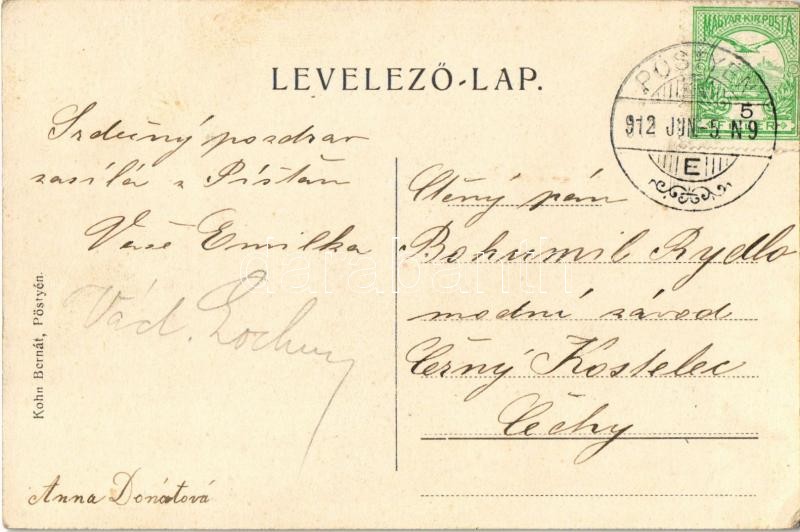 LEVELEZŐ-LAP.
MAGYAR·KIR·POSTA
PÖSTYÉN
912 JUN-5 N9
5
E
Srdečný pozdrav
zasílá z Píštan
Vaše Emilka
Václ.
Anna Donátová
Kohn Bernát, Pöstyén.
Ctěný pán
Bohumil Rydlo
modní závod
Černý Kostelec
Čechy
darabanth